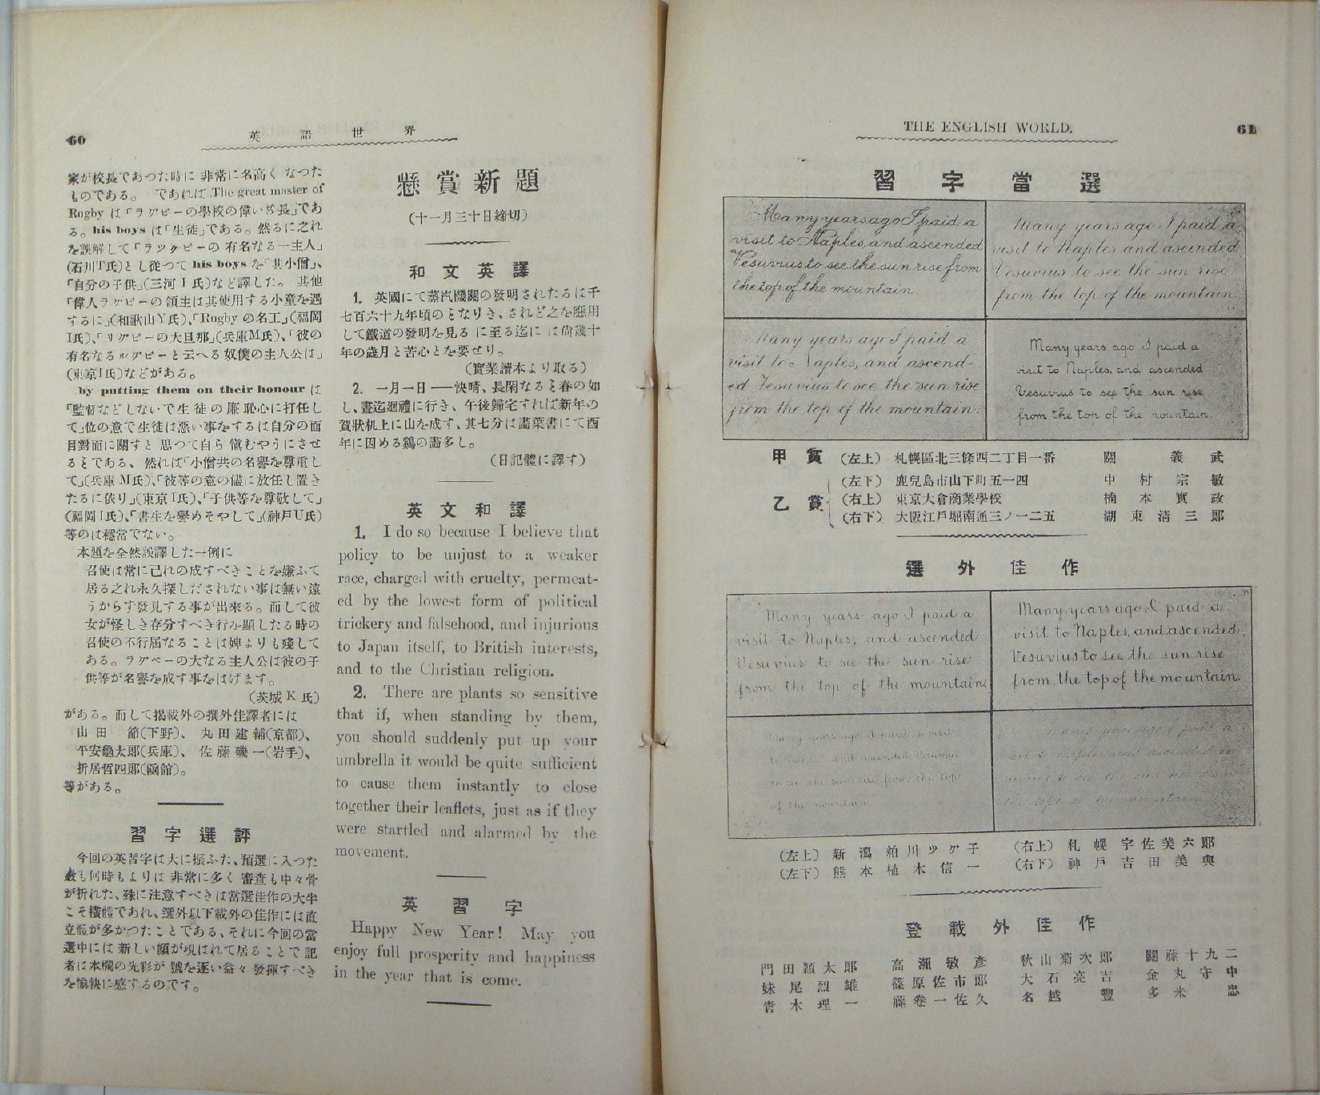 60
英語世界
家が校長であつた時に非常に名高くなつた
ものである。 であれば The great master of
Rugby は「ラグビーの學校の偉い校長」であ
る。his boys は「生徒」である。然るに之れ
を誤解して「ラツグビーの有名なる一主人」
(石川T氏)とし從つて his boys を「其小僧」、
「自分の子供」(三河I氏)など譯した。 其他
「偉人ラグビーの領主は其使用する小童を遇
するに」(和歌山Y氏)、「Rugby の名工」(福岡
I氏)、「リグビーの大旦那」(兵庫M氏)、「彼の
有名なるルグビーと云へる奴僕の主人公は」
(東京I氏)などがある。
by putting them on their honour は
「監督などしないで生徒の廉恥心に打任し
て」位の意で生徒は惡い事をするは自分の面
目對面に關すと思つて自ら愼むやうにさせ
るとである、然れば「小僧共の名譽を尊重し
て」(兵庫M氏)、「彼等の意の儘に放任し置き
たるに依り」(東京I氏)、「子供等を尊敬して」
(福岡I氏)、「書生を譽めそやして」(神戸U氏)
等のは穩當でない。
本題を全然誤譯した一例に
召使は常に己れの成すべきことを嫌ふて
居る之れ永久探しだされない事は無い遠
うからず發見する事が出來る。而して彼
女が怪しき存分すべき行ふ顯したる時の
召使の不行屆なることは婢よりも殘して
ある。ラグベーの大なる主人公は彼の子
供等が名譽を成す事をはげます。
(茨城K氏)
がある。而して揭載外の撰外佳譯者には
山田 節(下野)、 丸田建輔(京都)、
平安龜太郎(兵庫)、 佐藤磯一(岩手)、
折居哲四郎(函館)。
等がある。
習字選評
今回の英習字は大に振ふた、預選に入つた
數も何時もよりは非常に多く審査も中々骨
が折れた、殊に注意すべきは當選佳作の大半
こそ横體であれ、選外以下載外の佳作には直
立體が多かつたことである、それに今回の當
選中には新しい顏が現はれて居ることで記
者は本欄の光彩が號を逐い益々發揮すべき
を愉快に感ずるのです。
懸賞新題
(十一月三十日締切)
和文英譯
1. 英國にて蒸汽機關の發明されたるは千
七百六十九年頃のとなりき、されど之を應用
して鐵道の發明を見るに至る迄には尙幾十
年の歲月と苦心とを要せり。
(實業讀本より取る)
2. 一月一日——快晴、長閑なると春の如
し、晝迄廻禮に行き、午後歸宅すれば新年の
賀狀机上に山を成す、其七分は葉書にて酉
年に因める鷄の畵多し。
(日記體に譯す)
英文和譯
1. I do so because I believe that
policy to be unjust to a weaker
race, charged with cruelty, permeat-
ed by the lowest form of political
trickery and falsehood, and injurious
to Japan itself, to British interests,
and to the Christian religion.
2. There are plants so sensitive
that if, when standing by them,
you should suddenly put up your
umbrella it would be quite sufficient
to cause them instantly to close
together their leaflets, just as if they
were startled and alarmed by the
movement.
英習字
Happy New Year! May you
enjoy full prosperity and happiness
in the year that is come.
THE ENGLISH WORLD.
61
習字當選
Many years ago I paid a
visit to Naples, and ascended
Vesuvius to see the sun rise from
the top of the mountain.
Many years ago I paid a
visit to Naples and ascended
Vesuvius to see the sun rise
from the top of the mountain.
Many years ago I paid a
visit to Naples, and ascend-
ed Vesuvius to see the sun rise
from the top of the mountain.
Many years ago I paid a
visit to Naples, and ascended
Vesuvius to see the sun rise
from the top of the mountain.
甲賞 (左上) 札幌區北三條西二丁目一番 關義武
乙賞 (左下) 鹿兒島市山下町五一四 中村宗敏
(右上) 東京大倉商業學校 楠本實政
(右下) 大阪江戶堀南通三ノ一二五 湖東清三郎
選外佳作
Many years ago I paid a
visit to Naples, and ascended
Vesuvius to see the sun rise
from the top of the mountain.
Many years ago I paid a
visit to Naples, and ascended
Vesuvius to see the sun rise
from the top of the mountain.
Many years ago I paid a visit
to Naples and ascended Vesuvius
to see the sun rise from the top
of the mountain.
Many years ago I paid a
(左上) 新潟 粕川ツゲ子 (右上) 札幌 宇佐美六郎
(左下) 熊本 植木信一 (右下) 神戶 吉田美輿
登載外佳作
門田穎太郎 高瀬敏彥 秋山菊次郎 關藤十九二
妹尾烈雄 篠原佐市郎 大石亮吉 金丸守中
靑木理一 藤卷一佐久 名越豐 多米忠